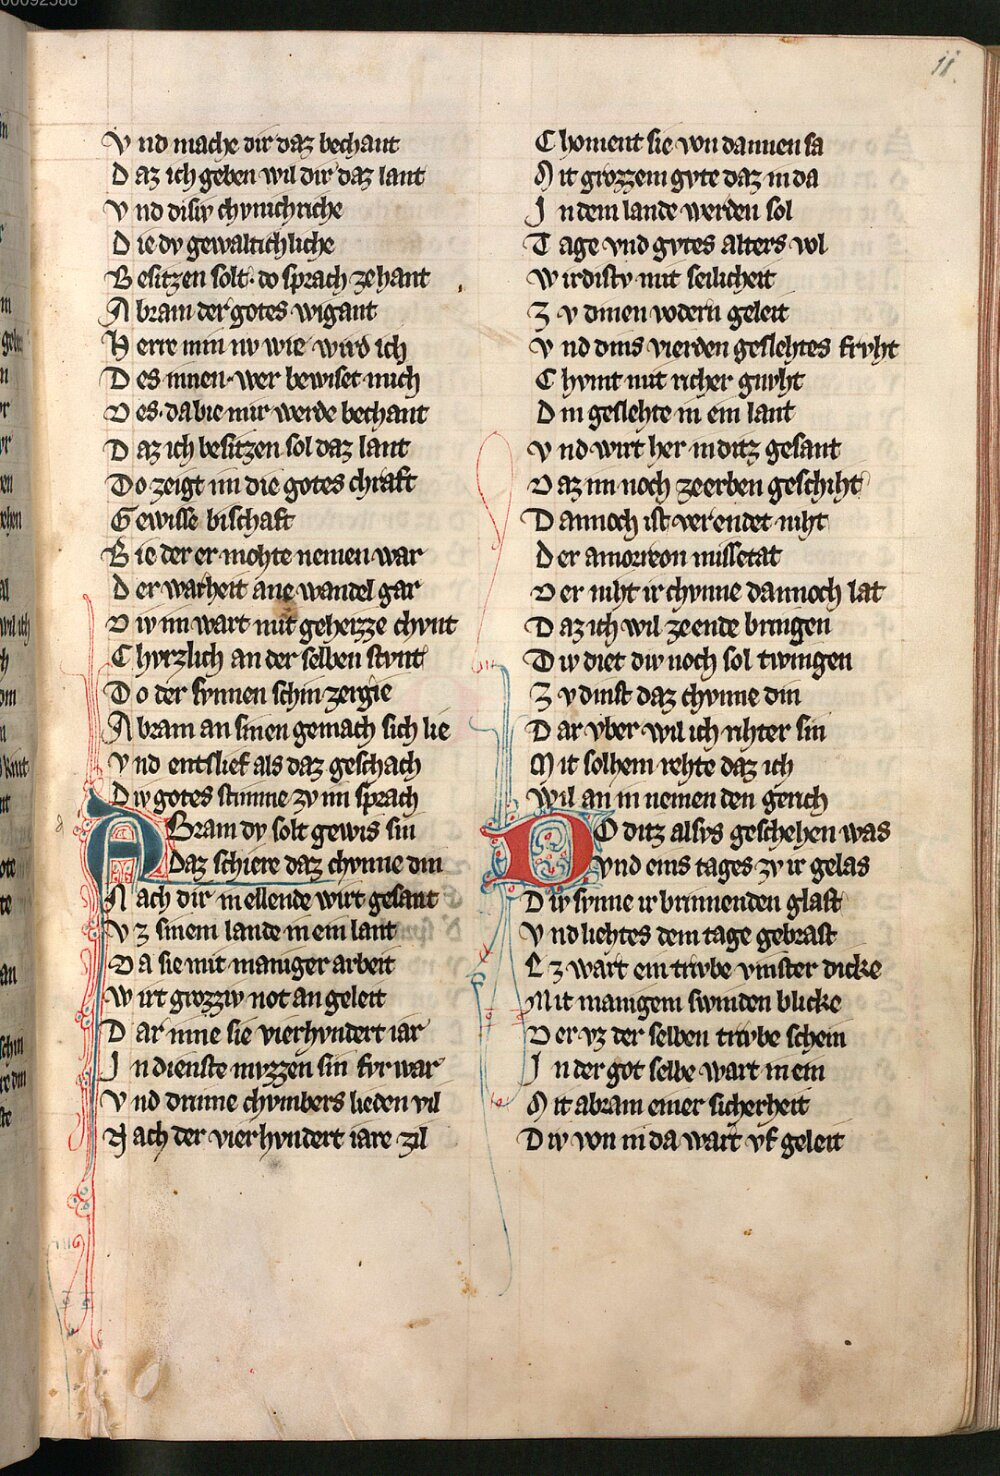 00092588
11
Vnd mache dir daz bechant
Daz ich geben wil dir daz lant
Vnd disiv chvnichriche
Die dv gewaltichliche
Besitzen solt· do sprach zehant
Abram der gotes wigant
Herre min nv wie wird ich
Des innen· wer bewiset mich
Des· da bie mir werde bechant
Daz ich besitzen sol daz lant
Do zeigt im die gotes chraft
Gewisse bischaft
Bie der er mohte nemen war
Der warheit ane wandel gar
Div im wart mit geheizze chvnt
Chvrzlich an der selben stvnt
Do der svnnen schin zergie
Abram an sinen gemach sich lie
Vnd entslief als daz geschach
Div gotes stimme zv im sprach
ABram dv solt gewis sin
Daz schiere daz chvnne din
Nach dir in ellende wirt gesant
Vz sinem lande in ein lant
Da sie mit maniger arbeit
Wirt grozziv not an geleit
Dar inne sie vierhvndert iar
In dienste mvzzen sin fvr war
Vnd drinne chvmbers lieden vil
Nach der vierhvndert iare zil
Choment sie von dannen sa
Mit grozzem gvte daz in da
In dem lande werden sol
Tage vnd gvtes alters vol
Wirdistv mit selicheit
Zv dinen vodern geleit
Vnd dins vierden geslehtes frvht
Chvmt mit richer gnvht
Din geslehte in ein lant
Vnd wirt her in ditz gesant
Daz im noch ze erben geschiht
Dannoch ist verendet niht
Der amorreon missetat
Der niht ir chvnne dannoch lat
Daz ich wil ze ende bringen
Div diet div noch sol twingen
Zv dinst daz chvnne din
Dar vber wil ich rihter sin
Mit solhem rehte daz ich
Wil an in nemen den gerich
DO ditz alsvs geschehen was
vnd eins tages zv ir gelas
Div svnne ir brinnenden glast
Vnd liehtes dem tage gebrast
Ez wart ein trvbe vinster dicke
Mit manigem swinden blicke
Der vz der selben trvbe schein
In der got selbe wart in ein
Mit abram einer sicherheit
Div von in da wart vf geleit